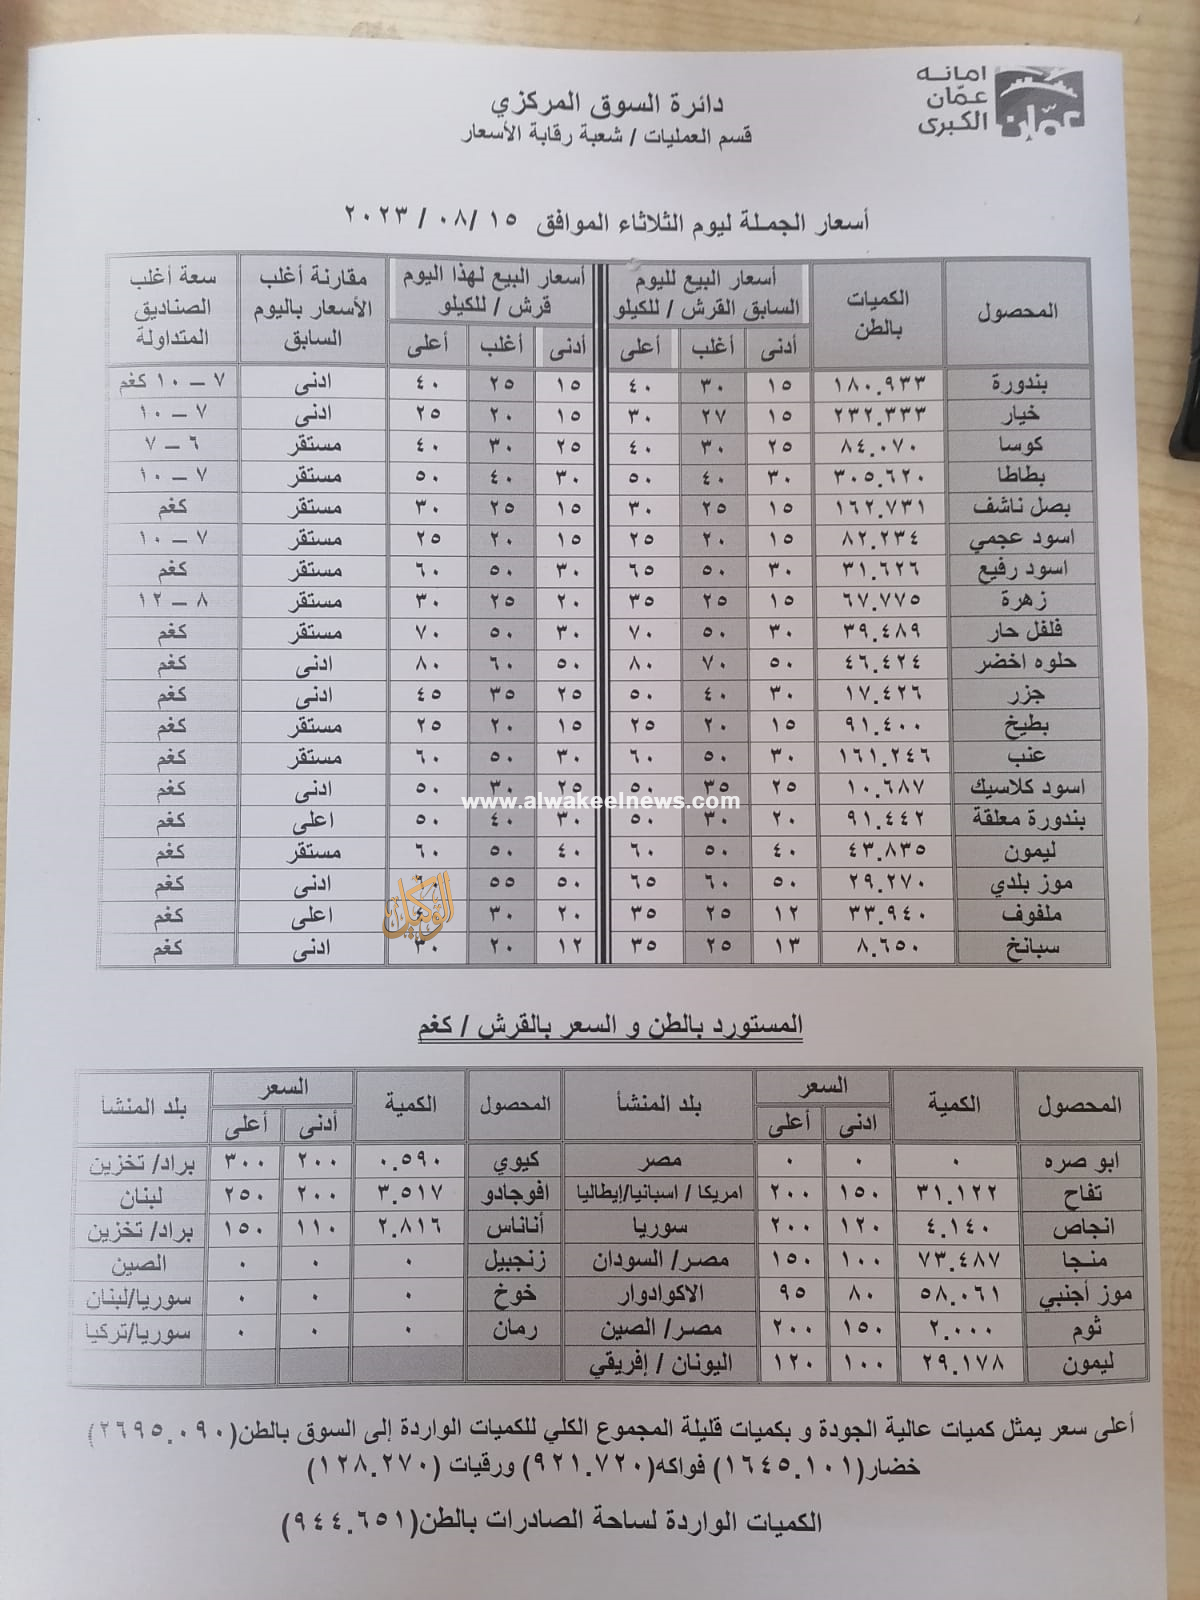 امانة
عمّان
الكبرى
عمّان
دائرة السوق المركزي
قسم العمليات / شعبة رقابة الأسعار
أسعار الجملة ليوم الثلاثاء الموافق ١٥ /٠٨ / ٢٠٢٣
المحصول الكميات بالطن أسعار البيع لليوم السابق القرش / للكيلو أسعار البيع لهذا اليوم قرش / للكيلو مقارنة أغلب الأسعار باليوم السابق سعة أغلب الصناديق المتداولة
أدنى أغلب أعلى أدنى أغلب أعلى
بندورة ١٨٠.٩٣٣ ١٥ ٣٠ ٤٠ ١٥ ٢٥ ٤٠ ادنى ٧ – ١٠ كغم
خيار ٢٣٢.٣٣٣ ١٥ ٢٧ ٣٠ ١٥ ٢٠ ٢٥ ادنى ٧ – ١٠
كوسا ٨٤.٠٧٠ ٢٥ ٣٠ ٤٠ ٢٥ ٣٠ ٤٠ مستقر ٦ – ٧
بطاطا ٣٠٥.٦٢٠ ٣٠ ٤٠ ٥٠ ٣٠ ٤٠ ٥٠ مستقر ٧ – ١٠
بصل ناشف ١٦٢.٧٣١ ١٥ ٢٥ ٣٠ ١٥ ٢٥ ٣٠ مستقر كغم
اسود عجمي ٨٢.٢٣٤ ١٥ ٢٠ ٢٥ ١٥ ٢٠ ٢٥ مستقر ٧ – ١٠
اسود رفيع ٣١.٦٢٦ ٣٠ ٥٠ ٦٥ ٣٠ ٥٠ ٦٠ مستقر كغم
زهرة ٦٧.٧٧٥ ١٥ ٢٥ ٣٥ ٢٠ ٢٥ ٣٠ مستقر ٨ – ١٢
فلفل حار ٣٩.٤٨٩ ٣٠ ٥٠ ٧٠ ٣٠ ٥٠ ٧٠ مستقر كغم
حلوه اخضر ٤٦.٤٢٤ ٥٠ ٧٠ ٨٠ ٥٠ ٦٠ ٨٠ ادنى كغم
جزر ١٧.٤٢٦ ٣٠ ٤٠ ٥٠ ٢٥ ٣٥ ٤٥ ادنى كغم
بطيخ ٩١.٤٠٠ ١٥ ٢٠ ٢٥ ١٥ ٢٠ ٢٥ مستقر كغم
عنب ١٦١.٢٤٦ ٣٠ ٥٠ ٦٠ ٣٠ ٥٠ ٦٠ مستقر كغم
اسود كلاسيك ١٠.٦٨٧ ٢٥ ٣٥ ٥٠ ٢٥ ٣٠ ٥٠ ادنى كغم
www.alwakeelnews.com
بندورة معلقة ٩١.٤٤٢ ٢٠ ٣٠ ٥٠ ٣٠ ٤٠ ٥٠ اعلى كغم
ليمون ٤٣.٨٣٥ ٤٠ ٥٠ ٦٠ ٤٠ ٥٠ ٦٠ مستقر كغم
موز بلدي ٢٩.٢٧٠ ٥٠ ٦٠ ٦٥ ٥٠ ٥٥ ٦٠ ادنى كغم
الوكيل
ملفوف ٣٣.٩٤٠ ١٢ ٢٥ ٣٥ ٢٠ ٣٠ اعلى كغم
سبانخ ٨.٦٥٠ ١٣ ٢٥ ٣٥ ١٢ ٢٠ ٣٠ ادنى كغم
المستورد بالطن و السعر بالقرش / كغم
المحصول الكمية السعر بلد المنشأ المحصول الكمية السعر بلد المنشأ
ادنى أعلى أدنى أعلى
ابو صره ٠ ٠ ٠ مصر كيوي ٠.٥٩٠ ٢٠٠ ٣٠٠ براد/ تخزين
تفاح ٣١.١٢٢ ١٥٠ ٢٠٠ امريكا / اسبانيا/إيطاليا افوجادو ٣.٥١٧ ٢٠٠ ٢٥٠ لبنان
انجاص ٤.١٤٠ ١٢٠ ٢٠٠ سوريا أناناس ٢.٨١٦ ١١٠ ١٥٠ براد/ تخزين
منجا ٧٣.٤٨٧ ١٠٠ ١٥٠ مصر/ السودان زنجبيل ٠ ٠ ٠ الصين
موز أجنبي ٥٨.٠٦١ ٨٠ ٩٥ الاكوادوار خوخ ٠ ٠ ٠ سوريا/لبنان
ثوم ٢.٠٠٠ ١٥٠ ٢٠٠ مصر/ الصين رمان ٠ ٠ ٠ سوريا/تركيا
ليمون ٢٩.١٧٨ ١٠٠ ١٢٠ اليونان / إفريقي
أعلى سعر يمثل كميات عالية الجودة و بكميات قليلة المجموع الكلي للكميات الواردة إلى السوق بالطن(٢٦٩٥.٠٩٠)
خضار(١٦٤٥.١٠١) فواكه(٩٢١.٧٢٠) ورقيات (١٢٨.٢٧٠)
الكميات الواردة لساحة الصادرات بالطن(٩٤٤.٦٥١)